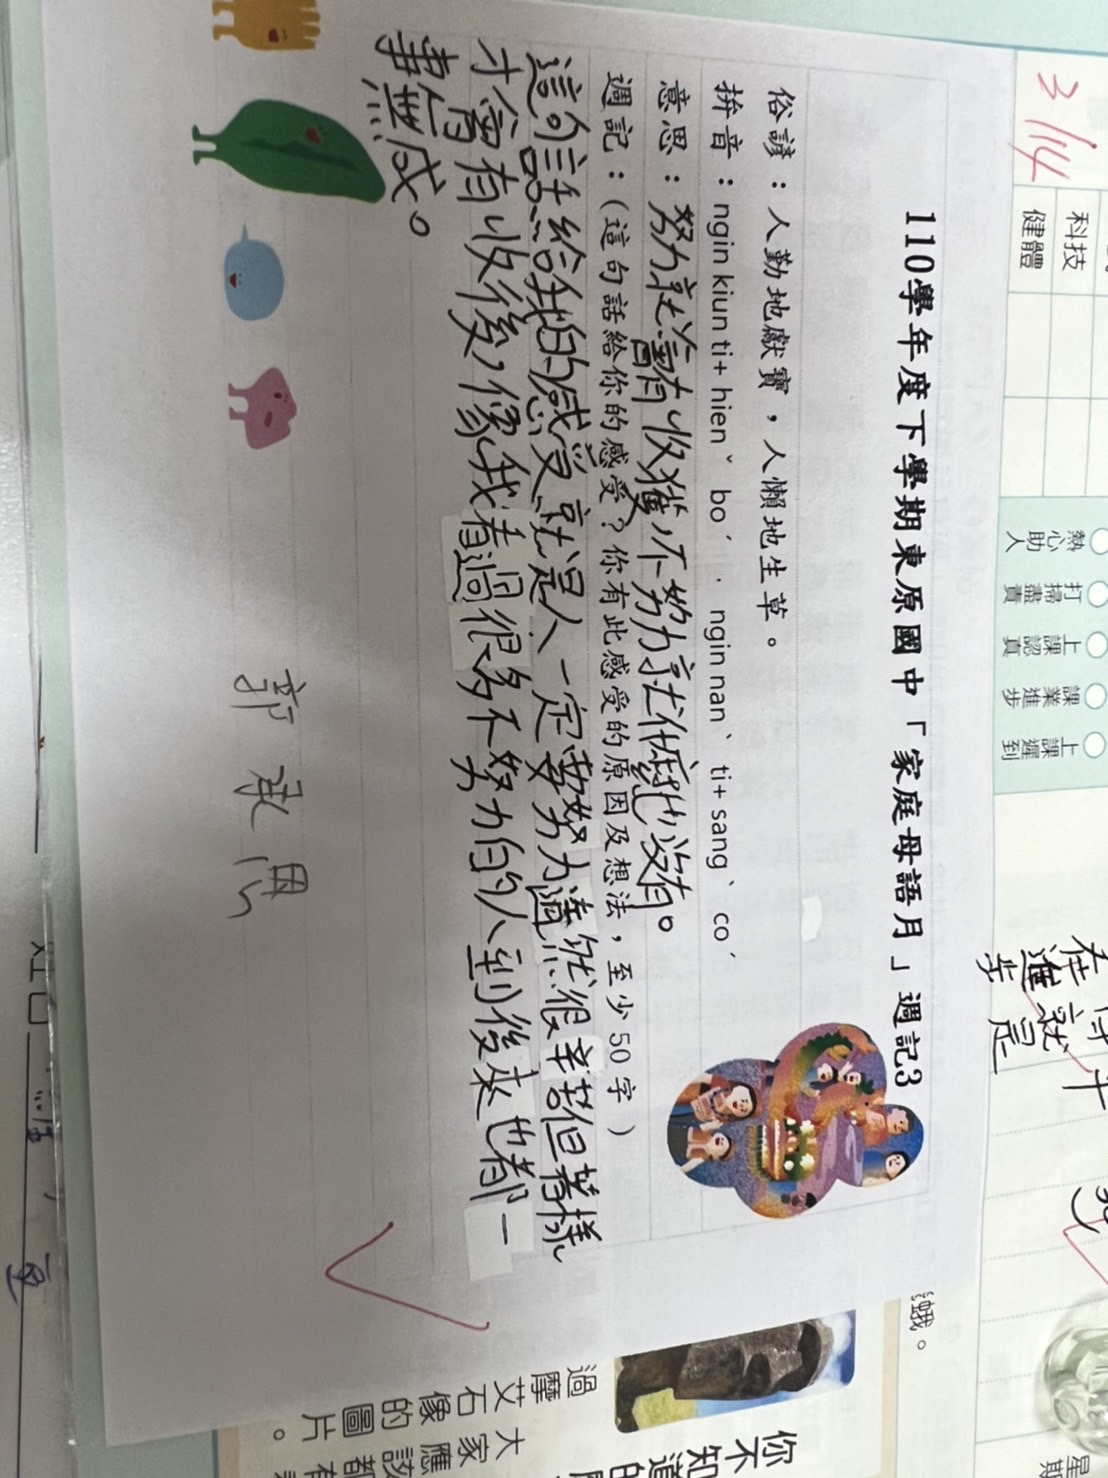 110學年度下學期東原國中「家庭母語月」週記3
俗諺：人勤地獻寶，人懶地生草。
拚音：ngin kiun ti+ hienˇ boˊ. ngin nanˋ ti+ sangˋ coˊ
意思：努力就會有收獲，不努力就什麼也沒有。
週記：（這句話給你的感受？你有此感受的原因及想法，至少50字）
這句話給我的感受就是人一定要努力雖然很辛苦但這樣
才會有收後，像我看過很多不努力的人到後來也都一
事無成。
郭承恩
3/14
科技
健體
熱心助人
打掃盡責
上課認真
課業進步
上課遲到
就是
進步
蛾。
過摩艾石像的圖片。
大家應該都有
你不知道的
星期